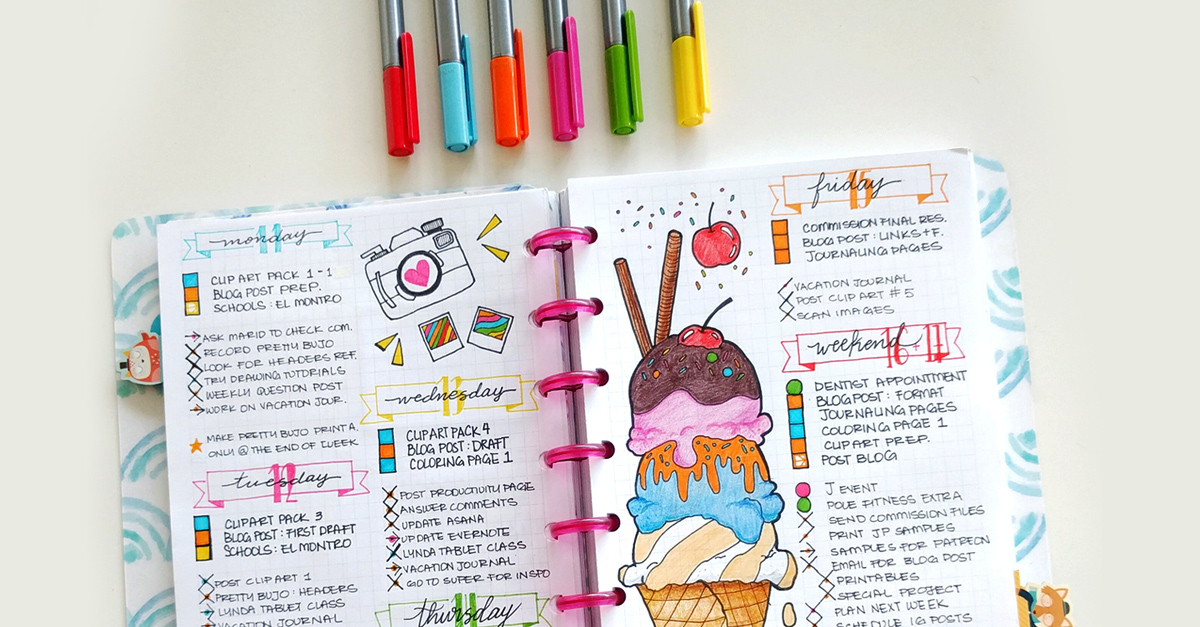 monday 11
CLIP ART PACK 1-1
BLOG POST PREP.
SCHOOLS: EL MONTRO
ASK MARID TO CHECK COM.
RECORD PRETTY BUJO
LOOK FOR HEADERS REF.
TRY DRAWING TUTORIALS
WEEKLY QUESTION POST
WORK ON VACATION JOUR.
MAKE PRETTY BUJO PRINTA.
ONLY @ THE END OF WEEK
tuesday 12
CLIPART PACK 3
BLOG POST: FIRST DRAFT
SCHOOLS: EL MONTRO
POST CLIP ART 1
PRETTY BUJO: HEADERS
LYNDA TABLET CLASS
VACATION JOURNAL
wednesday 13
CLIPART PACK 4
BLOG POST: DRAFT
COLORING PAGE 1
POST PRODUCTIVITY PAGE
ANSWER COMMENTS
UPDATE ASANA
UPDATE EVERNOTE
LYNDA TABLET CLASS
VACATION JOURNAL
GO TO SUPER FOR INSPO
thursday
friday 15
COMMISSION FINAL RES.
BLOG POST: LINKS + F.
JOURNALING PAGES
VACATION JOURNAL
POST CLIP ART #5
SCAN IMAGES
weekend 16-17
DENTIST APPOINTMENT
BLOGPOST: FORMAT
JOURNALING PAGES
COLORING PAGE 1
CLIPART PREP.
POST BLOG
J EVENT
POLE FITNESS EXTRA
SEND COMMISSION FILES
PRINT JP SAMPLES
SAMPLES FOR PATREON
EMAIL FOR BLOG POST
PRINTABLES
SPECIAL PROJECT
PLAN NEXT WEEK
SCHEDULE IG POSTS